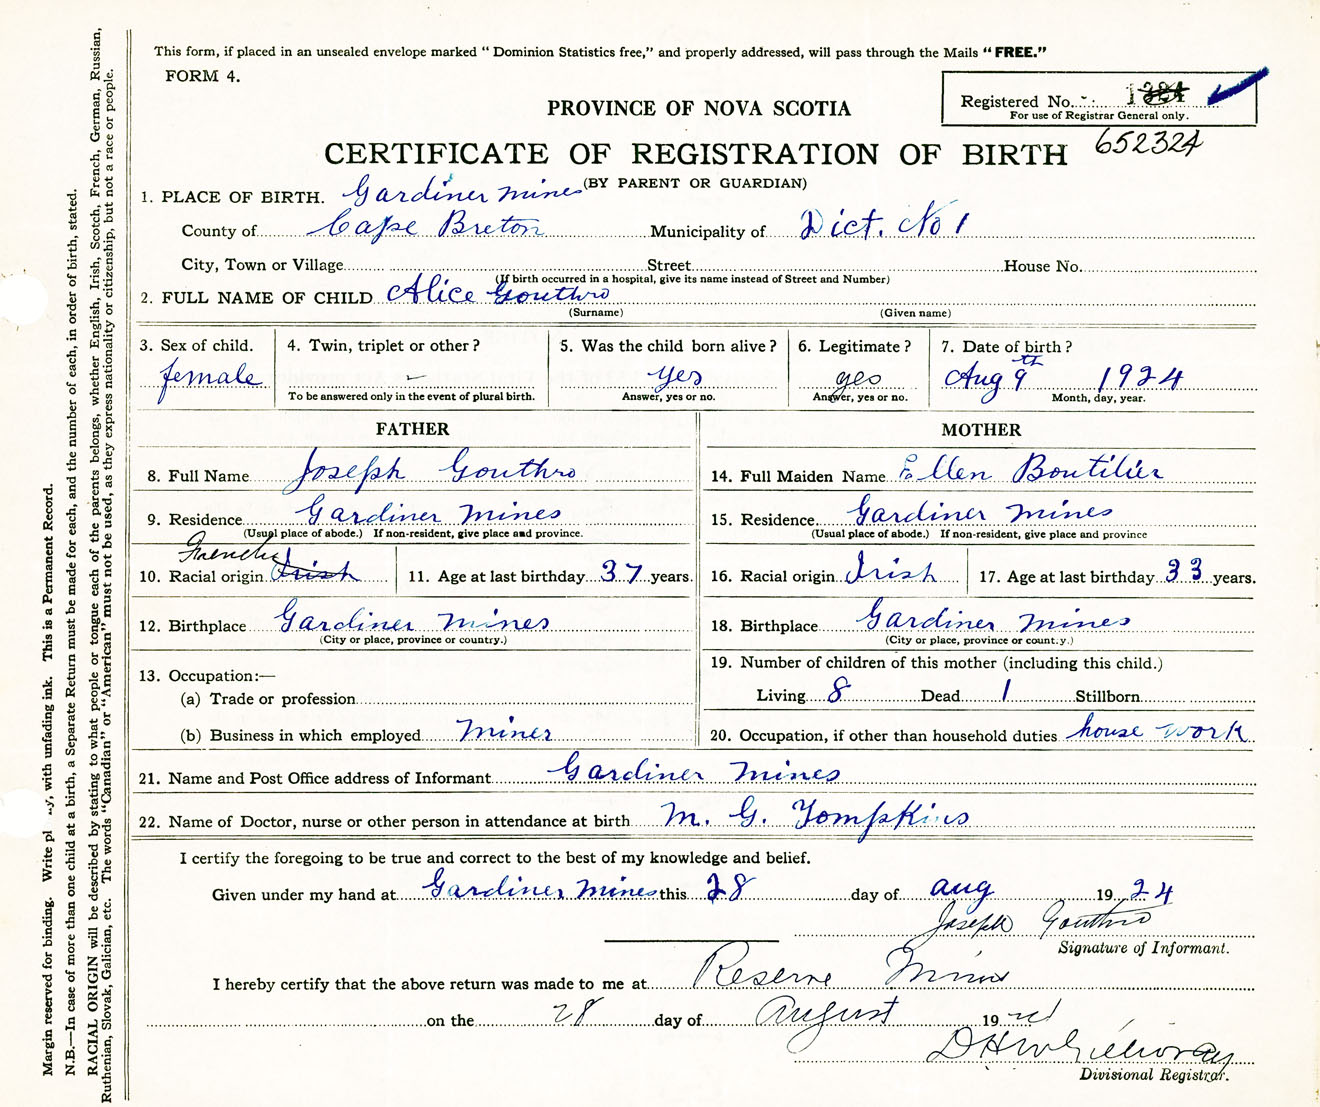 This form, if placed in an unsealed envelope marked "Dominion Statistics free," and properly addressed, will pass through the Mails "FREE."
FORM 4.
Registered No.
For use of Registrar General only.
652324
PROVINCE OF NOVA SCOTIA
CERTIFICATE OF REGISTRATION OF BIRTH
(BY PARENT OR GUARDIAN)
1. PLACE OF BIRTH. Gardiner Mines
County of Cape Breton Municipality of Dict. No 1
City, Town or Village Street House No.
(If birth occurred in a hospital, give its name instead of Street and Number)
2. FULL NAME OF CHILD Alice Gouthro
(Surname) (Given name)
3. Sex of child. 4. Twin, triplet or other? 5. Was the child born alive? 6. Legitimate? 7. Date of birth?
female - yes yes Aug 9th 1924
To be answered only in the event of plural birth. Answer, yes or no. Answer, yes or no. Month, day, year.
FATHER MOTHER
8. Full Name Joseph Gouthro 14. Full Maiden Name Ellen Boutilier
9. Residence Gardiner Mines 15. Residence Gardiner Mines
(Usual place of abode.) If non-resident, give place and province. (Usual place of abode.) If non-resident, give place and province
French
10. Racial origin Irish 11. Age at last birthday 37 years. 16. Racial origin Irish 17. Age at last birthday 33 years.
12. Birthplace Gardiner Mines 18. Birthplace Gardiner Mines
(City or place, province or country.) (City or place, province or count.y.)
13. Occupation:— 19. Number of children of this mother (including this child.)
(a) Trade or profession Living 8 Dead 1 Stillborn
(b) Business in which employed Miner 20. Occupation, if other than household duties house work
21. Name and Post Office address of Informant Gardiner Mines
22. Name of Doctor, nurse or other person in attendance at birth M. G. Tompkins
I certify the foregoing to be true and correct to the best of my knowledge and belief.
Given under my hand at Gardiner Mines this 28 day of aug 1924
Joseph Gouthro
Signature of Informant.
I hereby certify that the above return was made to me at Reserve Mines
on the 28 day of August 1924
Divisional Registrar.
Margin reserved for binding. Write with unfading ink. This is a Permanent Record.
N.B.—In case of more than one child at a birth, a Separate Return must be made for each, and the number of each, in order of birth, stated.
RACIAL ORIGIN will be described by stating to what people or tongue each of the parents belongs, whether English, Irish, Scotch, French, German, Russian,
Ruthenian, Slovak, Galician, etc. The words "Canadian" or "American" must not be used, as they express nationality or citizenship, but not a race or people.